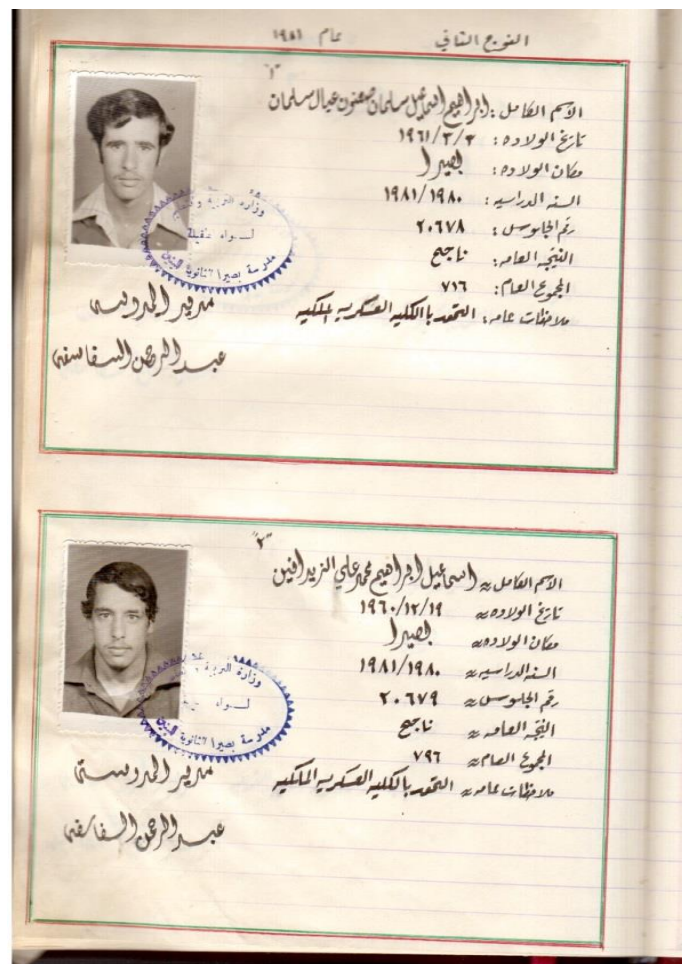 الفوج الثاني عام ١٩٨١
"١"
الاسم الكامل: ابراهيم اسماعيل سلمان صعنون عيال سلمان
تاريخ الولاده: ١٩٦١/٣/٢
مكان الولاده: بصيرا
السنه الدراسيه: ١٩٨١/١٩٨٠
رقم الجلوس: ٢٠٦٧٨
النتيجه العامه: ناجح
المجموع العام: ٧١٦
ملاحظات عامه: التحق بالكليه العسكريه الملكيه
وزارة التربية و
لـواء
مدرسة بصيرا الثانوية للبنين
مدير المدرسه
عبد الرحمن السفاسفه
"٢"
الاسم الكامل: اسماعيل ابراهيم محمد علي الزيدانين
تاريخ الولاده: ١٩٦٠/١٢/١٩
مكان الولاده: بصيرا
السنه الدراسيه: ١٩٨١/١٩٨٠
رقم الجلوس: ٢٠٦٧٩
النتيجه العامه: ناجح
المجموع العام: ٧٩٦
ملاحظات عامه: التحق بالكليه العسكريه الملكيه
وزارة التربية
لـواء
مدرسة بصيرا الثانوية للبنين
مدير المدرسة
عبد الرحمن السفاسفه